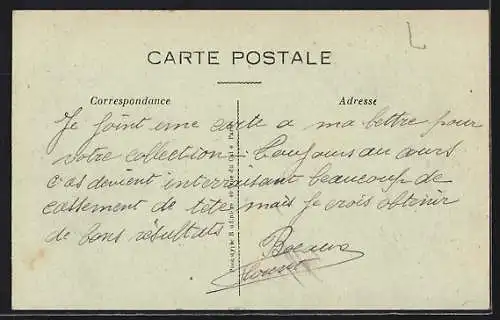 CARTE POSTALE
Correspondance
Adresse
Je joint une carte a ma lettre pour
votre collection. Toujours au cours
c'as devient interraisant beaucoup de
cassement de tête mais je crois obtenir
de bons résultats